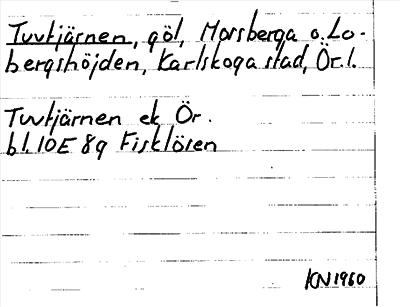 Tuvtjärnen, göl, Morsberga o. Lo-
bergshöjden, Karlskoga stad, Ör. l.
Tuvtjärnen ek Ör.
bl. 10E 8g Fisklösen
KN 1960